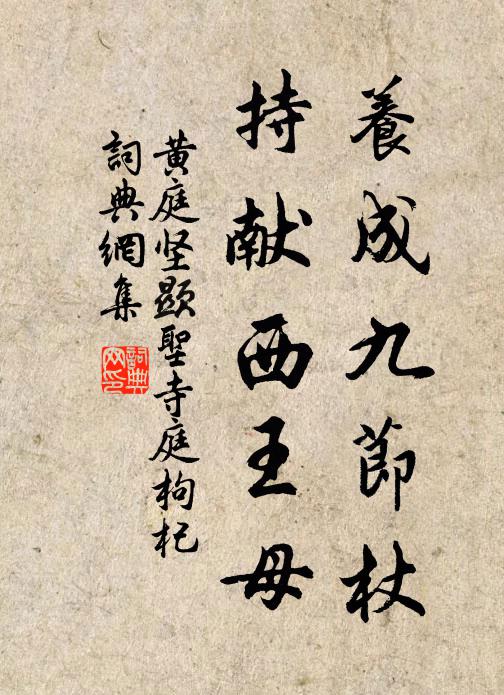 養成九節杖
持献西王母
黄庭坚顯聖寺庭枸杞
詞典網集
詞典網印